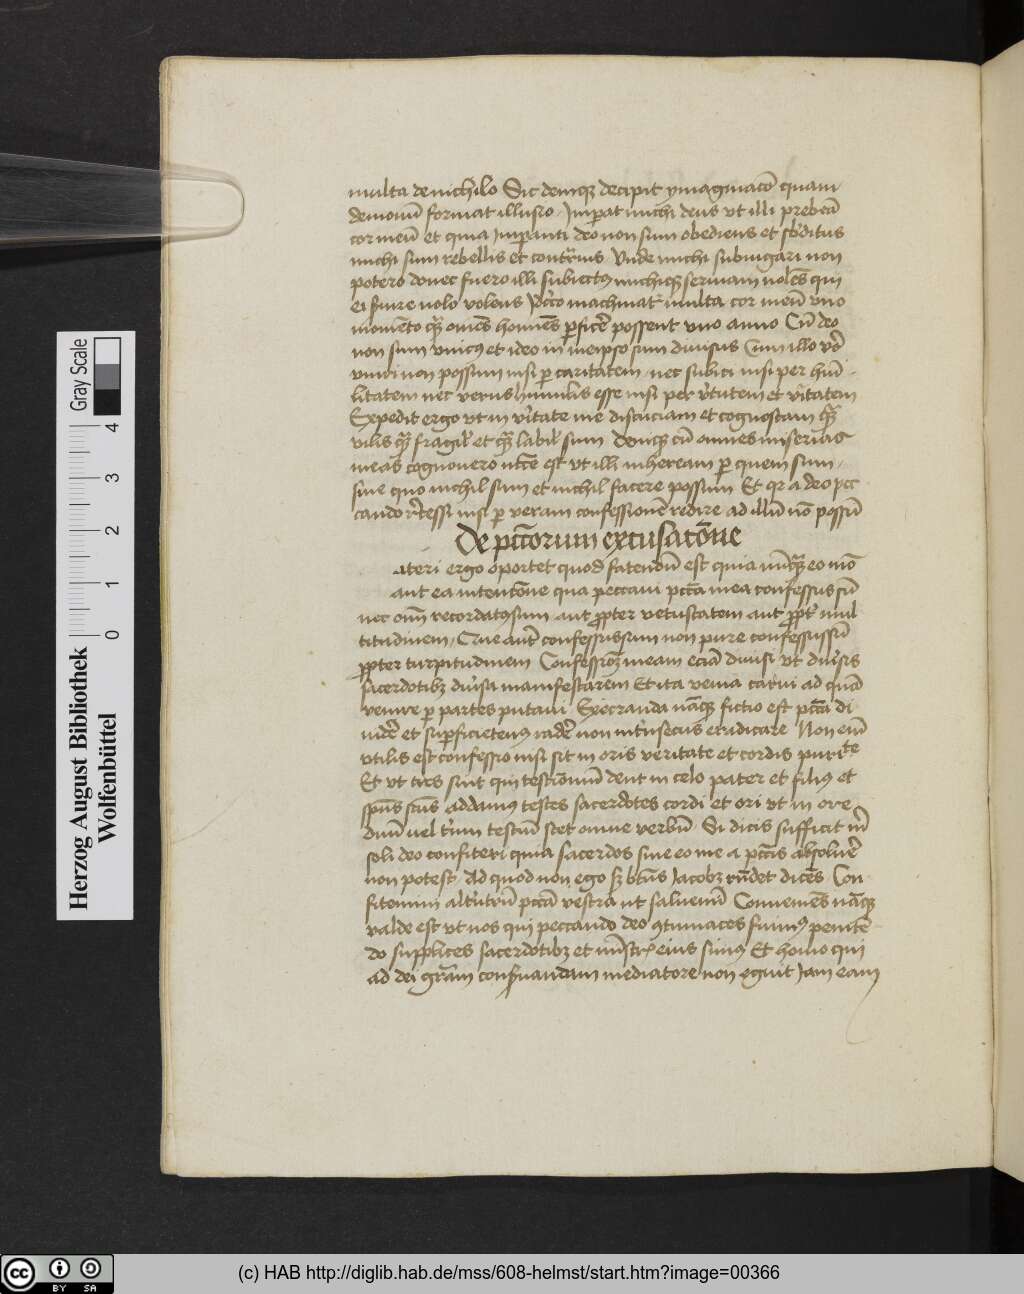 multa de nichilo Sic denique decipit ymaginacō quam
demonū format illusio Inperat michi deus vt illi prebeā
cor meū et quia Inperanti deo non sum obediens et sbditus
michi sum rebellis et contrius Vnde michi subiugari non
potero donec fuero illi subiectus michique seruiam nolēs qui
ei suire nolo volens Pcto machinat multa cor meū vno
momēto quā omēs homēs pficē possent vno anno Cū deo
non sum vnicus et ideo in meipso sum diuisus Cum illo vo
vniri non possum nisi p caritatem nec subici nisi per humi
litatem nec verus humilis esse nisi per virtutem et vitatem
Expedit ergo vt in vitate me discuciam et cognoscam quā
vilis quā fragil et quā labil sum Denique cū omnes miserias
meas cognouero ncēe est vt illi inheream p quem sum
sine quo nichil sum et nichil facere possum Et qr a deo pcc
cando recessi nisi p veram confessionē redire ad illū nō possū
De pctorum excusacōne
ateri ergo oportet quod fatendū est quia nūquā eo mō
aut ea intencōne qua peccaui pctā mea confessus sū
nec oīm recordatus sum aut ppter vetustatem aut ppt mul
titudinem Que autē confessus sum non pure confessus sū
ppter turpitudinem Confessionē meam eciā diuisi vt diusis
sacerdotibz diuisa manifestarem Et ita veniā carui ad quā
venire p partes putaui Execranda nāque fictio est pctā di
uidē et suppficietenus radē non intrinsecus eradicare Non enī
vtilis est confessio nisi sit in oris veritate et cordis purite
Et vt tres sint qui testimoniū dent in celo pater et filius et
spūs scūs addamus testes sacerdotes cordi et ori vt in ore
duū uel trium testiū stet omne verbū Si dicis sufficit m
soli deo confiteri quia sacerdos sine eo me a pctis absoluē
non potest Ad quod non ego sz btūs Jacobz rndet dicēs Con
fitemini altutrū pctā vestra ut saluemī Conueniēs nāque
valde est vt nos qui peccando deo 9tumaces fuimus penitē
do supplices sacerdotibz et ministris eius simus Et homo qui
ad dei grām consuandam mediatore non eguit Jam eam
Herzog August Bibliothek
Wolfenbüttel
Gray Scale
0 1 2 3 4
cc BY SA
(c) HAB http://diglib.hab.de/mss/608-helmst/start.htm?image=00366